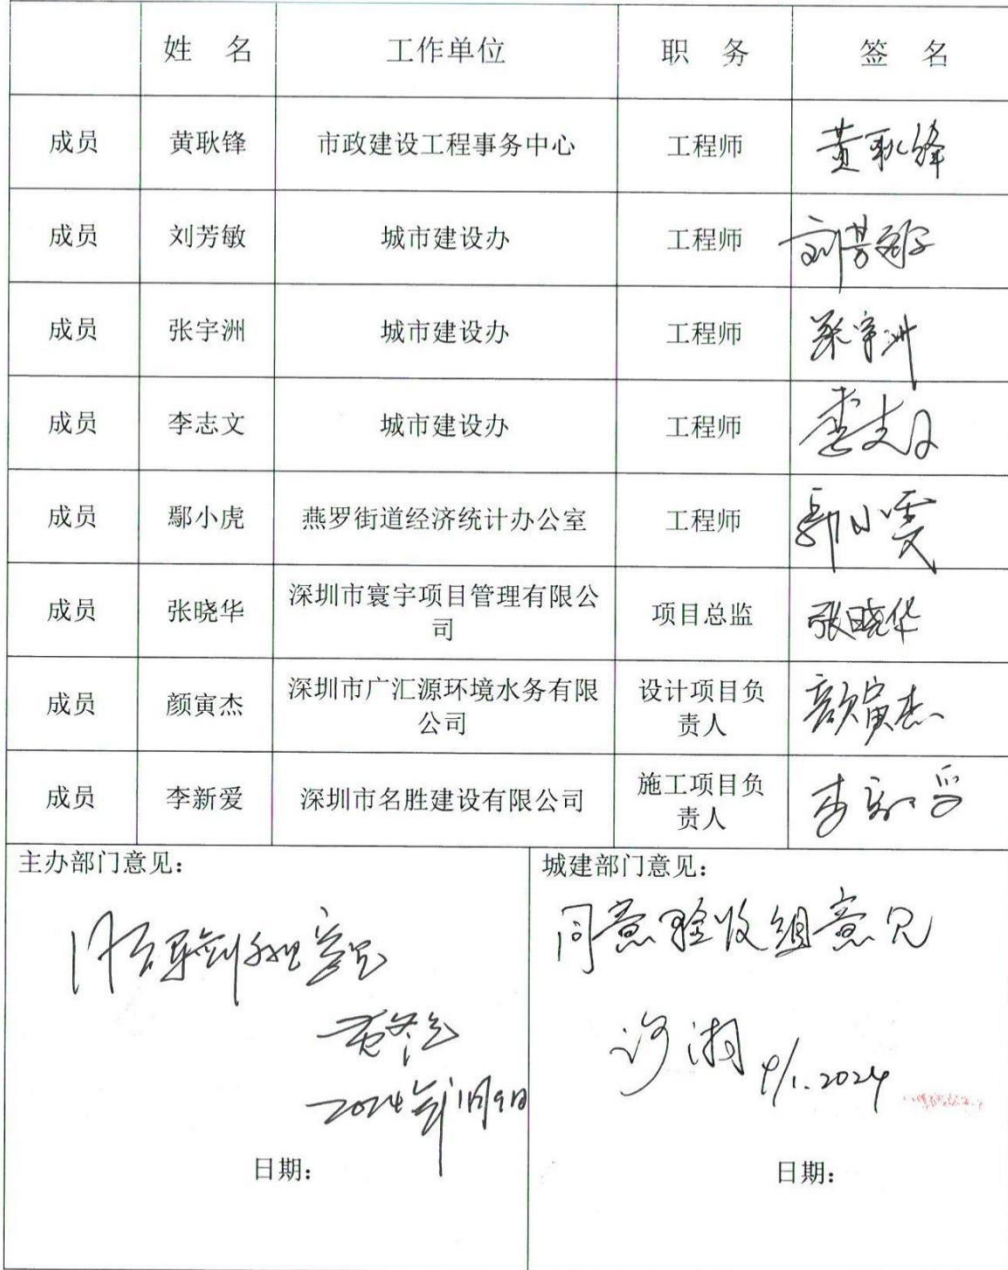 姓 名 工作单位 职 务 签 名
成员 黄耿锋 市政建设工程事务中心 工程师 黄耿锋
成员 刘芳敏 城市建设办 工程师 刘芳敏
成员 张宇洲 城市建设办 工程师 张宇洲
成员 李志文 城市建设办 工程师 李志文
成员 鄢小虎 燕罗街道经济统计办公室 工程师 鄢小虎
成员 张晓华 深圳市寰宇项目管理有限公 项目总监 张晓华
司
成员 颜寅杰 深圳市广汇源环境水务有限 设计项目负 颜寅杰
公司 责人
成员 李新爱 深圳市名胜建设有限公司 施工项目负 李新爱
责人
主办部门意见：
同意验收组意见
2024年1月9日
日期：
城建部门意见：
同意验收组意见
9/1.2024
日期：